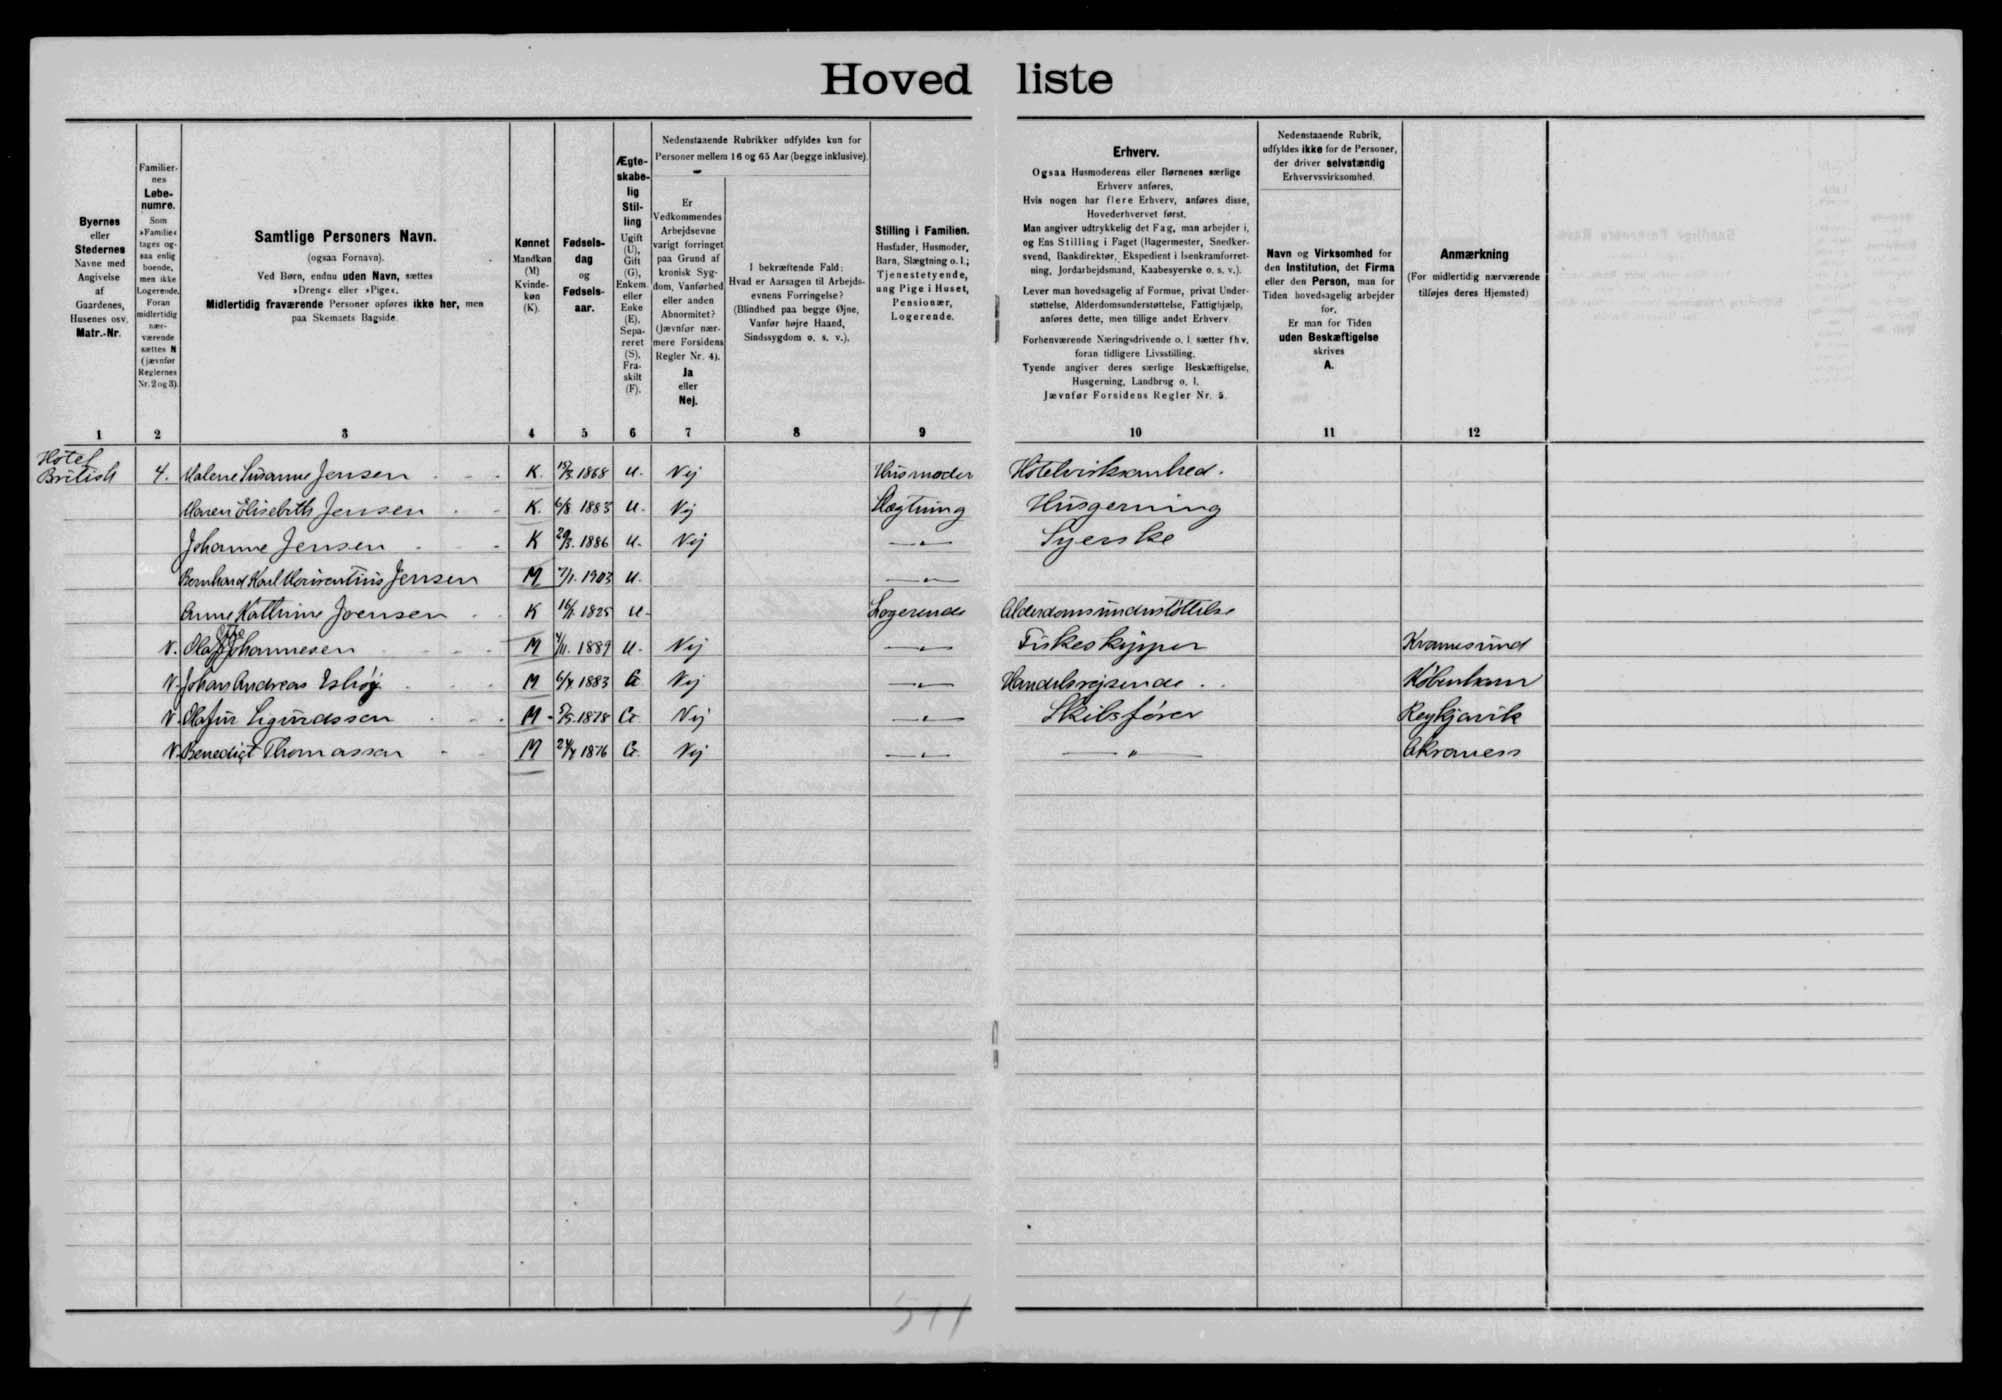 Hoved liste
Byernes
eller
Stedernes
Navne med
Angivelse
af
Gaardenes,
Husenes osv.
Matr.-Nr.
Familier-
nes
Løbe-
numre.
Som
»Familie«
tages og-
saa enlig
boende,
men ikke
Logerende.
Foran
midlertidig
nær-
værende
sættes N
(jævnfør
Reglernes
Nr. 2 og 3).
Samtlige Personers Navn.
(ogsaa Fornavn).
Ved Børn, endnu uden Navn, sættes
»Dreng« eller »Pige«.
Midlertidig fraværende Personer opføres ikke her, men
paa Skemaets Bagside.
Kønnet
Mandkøn
(M)
Kvinde-
køn
(K).
Fødsels-
dag
og
Fødsels-
aar.
Ægte-
skabe-
lig
Stil-
ling
Ugift
(U),
Gift
(G),
Enkem.
eller
Enke
(E),
Sepa-
reret
(S),
Fra-
skilt
(F).
Nedenstaaende Rubrikker udfyldes kun for
Personer mellem 16 og 65 Aar (begge inklusive).
Er
Vedkommendes
Arbejdsevne
varigt forringet
paa Grund af
kronisk Syg-
dom, Vanførhed
eller anden
Abnormitet?
(Jævnfør nær-
mere Forsidens
Regler Nr. 4).
Ja
eller
Nej.
I bekræftende Fald:
Hvad er Aarsagen til Arbejds-
evnens Forringelse?
(Blindhed paa begge Øjne,
Vanfør højre Haand,
Sindssygdom o. s. v.).
Stilling i Familien.
Husfader, Husmoder,
Barn, Slægtning o. l.;
Tjenestetyende,
ung Pige i Huset,
Pensionær,
Logerende.
Erhverv.
Ogsaa Husmoderens eller Børnenes særlige
Erhverv anføres.
Hvis nogen har flere Erhverv, anføres disse,
Hovederhvervet først.
Man angiver udtrykkelig det Fag, man arbejder i,
og Ens Stilling i Faget (Bagermester, Snedker-
svend, Bankdirektør, Ekspedient i Isenkramforret-
ning, Jordarbejdsmand, Kaabesyerske o. s. v.).
Lever man hovedsagelig af Formue, privat Under-
støttelse, Alderdomsunderstøttelse, Fattighjælp,
anføres dette, men tillige andet Erhverv.
Forhenværende Næringsdrivende o. l. sætter fhv.
foran tidligere Livsstilling.
Tyende angiver deres særlige Beskæftigelse,
Husgerning, Landbrug o. l.
Jævnfør Forsidens Regler Nr. 5.
Nedenstaaende Rubrik,
udfyldes ikke for de Personer,
der driver selvstændig
Erhvervsvirksomhed.
Navn og Virksomhed for
den Institution, det Firma
eller den Person, man for
Tiden hovedsagelig arbejder
for.
Er man for Tiden
uden Beskæftigelse
skrives
A.
Anmærkning
(For midlertidig nærværende
tilføjes deres Hjemsted)
1 2 3 4 5 6 7 8 9 10 11 12
Hotel
British 4. Malene Susanne Jensen K. 1868 U. Nej Husmoder Hotelvirksomhed.
Maren Elisebith Jensen K. 6/8 1883 U. Nej Slægtning Husgerning
Johanne Jensen K 1886 U. Nej —"— Syerske
Bernhard Karl Jensen M 1903 U. —"—
Anne Kathrine Joensen K 1825 U. Logerende Alderdomsunderstøttelse
N. Johannesen M 1889 U. Nej —"— Fiskeskipper
N. Johan Andreas M 6/4 1883 G Nej —"— Handelsrejsende København
N. Olafur Sigurdsson M 1878 G. Nej —"— Skibsfører Reykjavik
N. Benedigt Thomasson M 24/4 1876 G. Nej —"— —"— Akraness
511